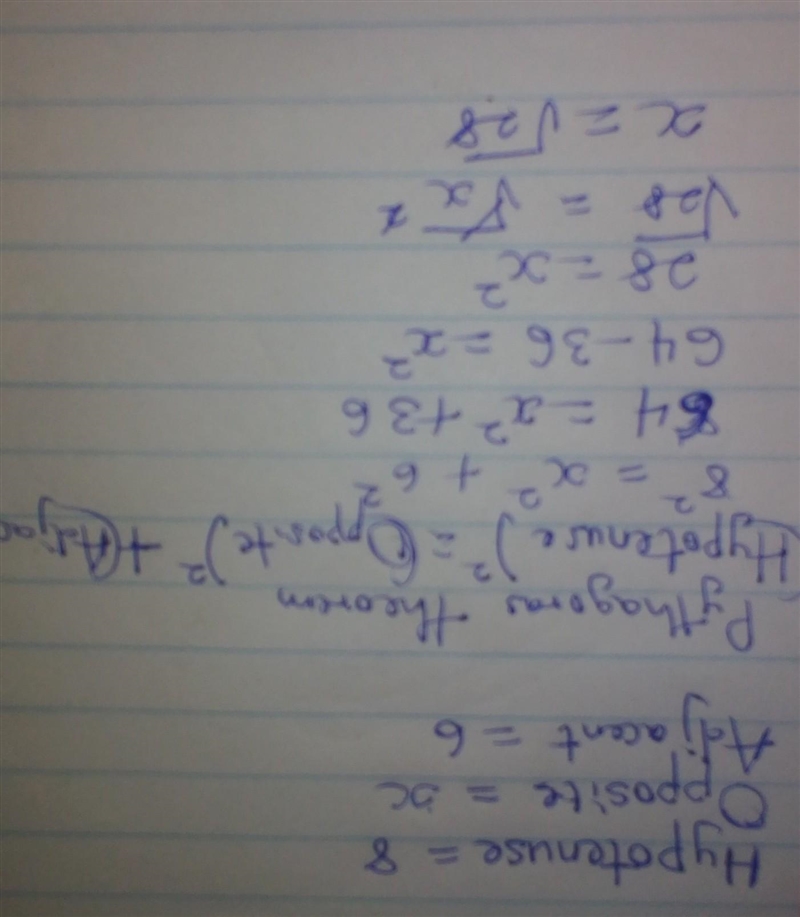 Hypotenuse = 8
Opposite = x
Adjacent = 6
Pythagoras theorem
(Hypotenuse)² = (Opposite)² + (Adjac
8² = x² + 6²
64 = x² + 36
64 - 36 = x²
28 = x²
√28 = √x²
x = √28